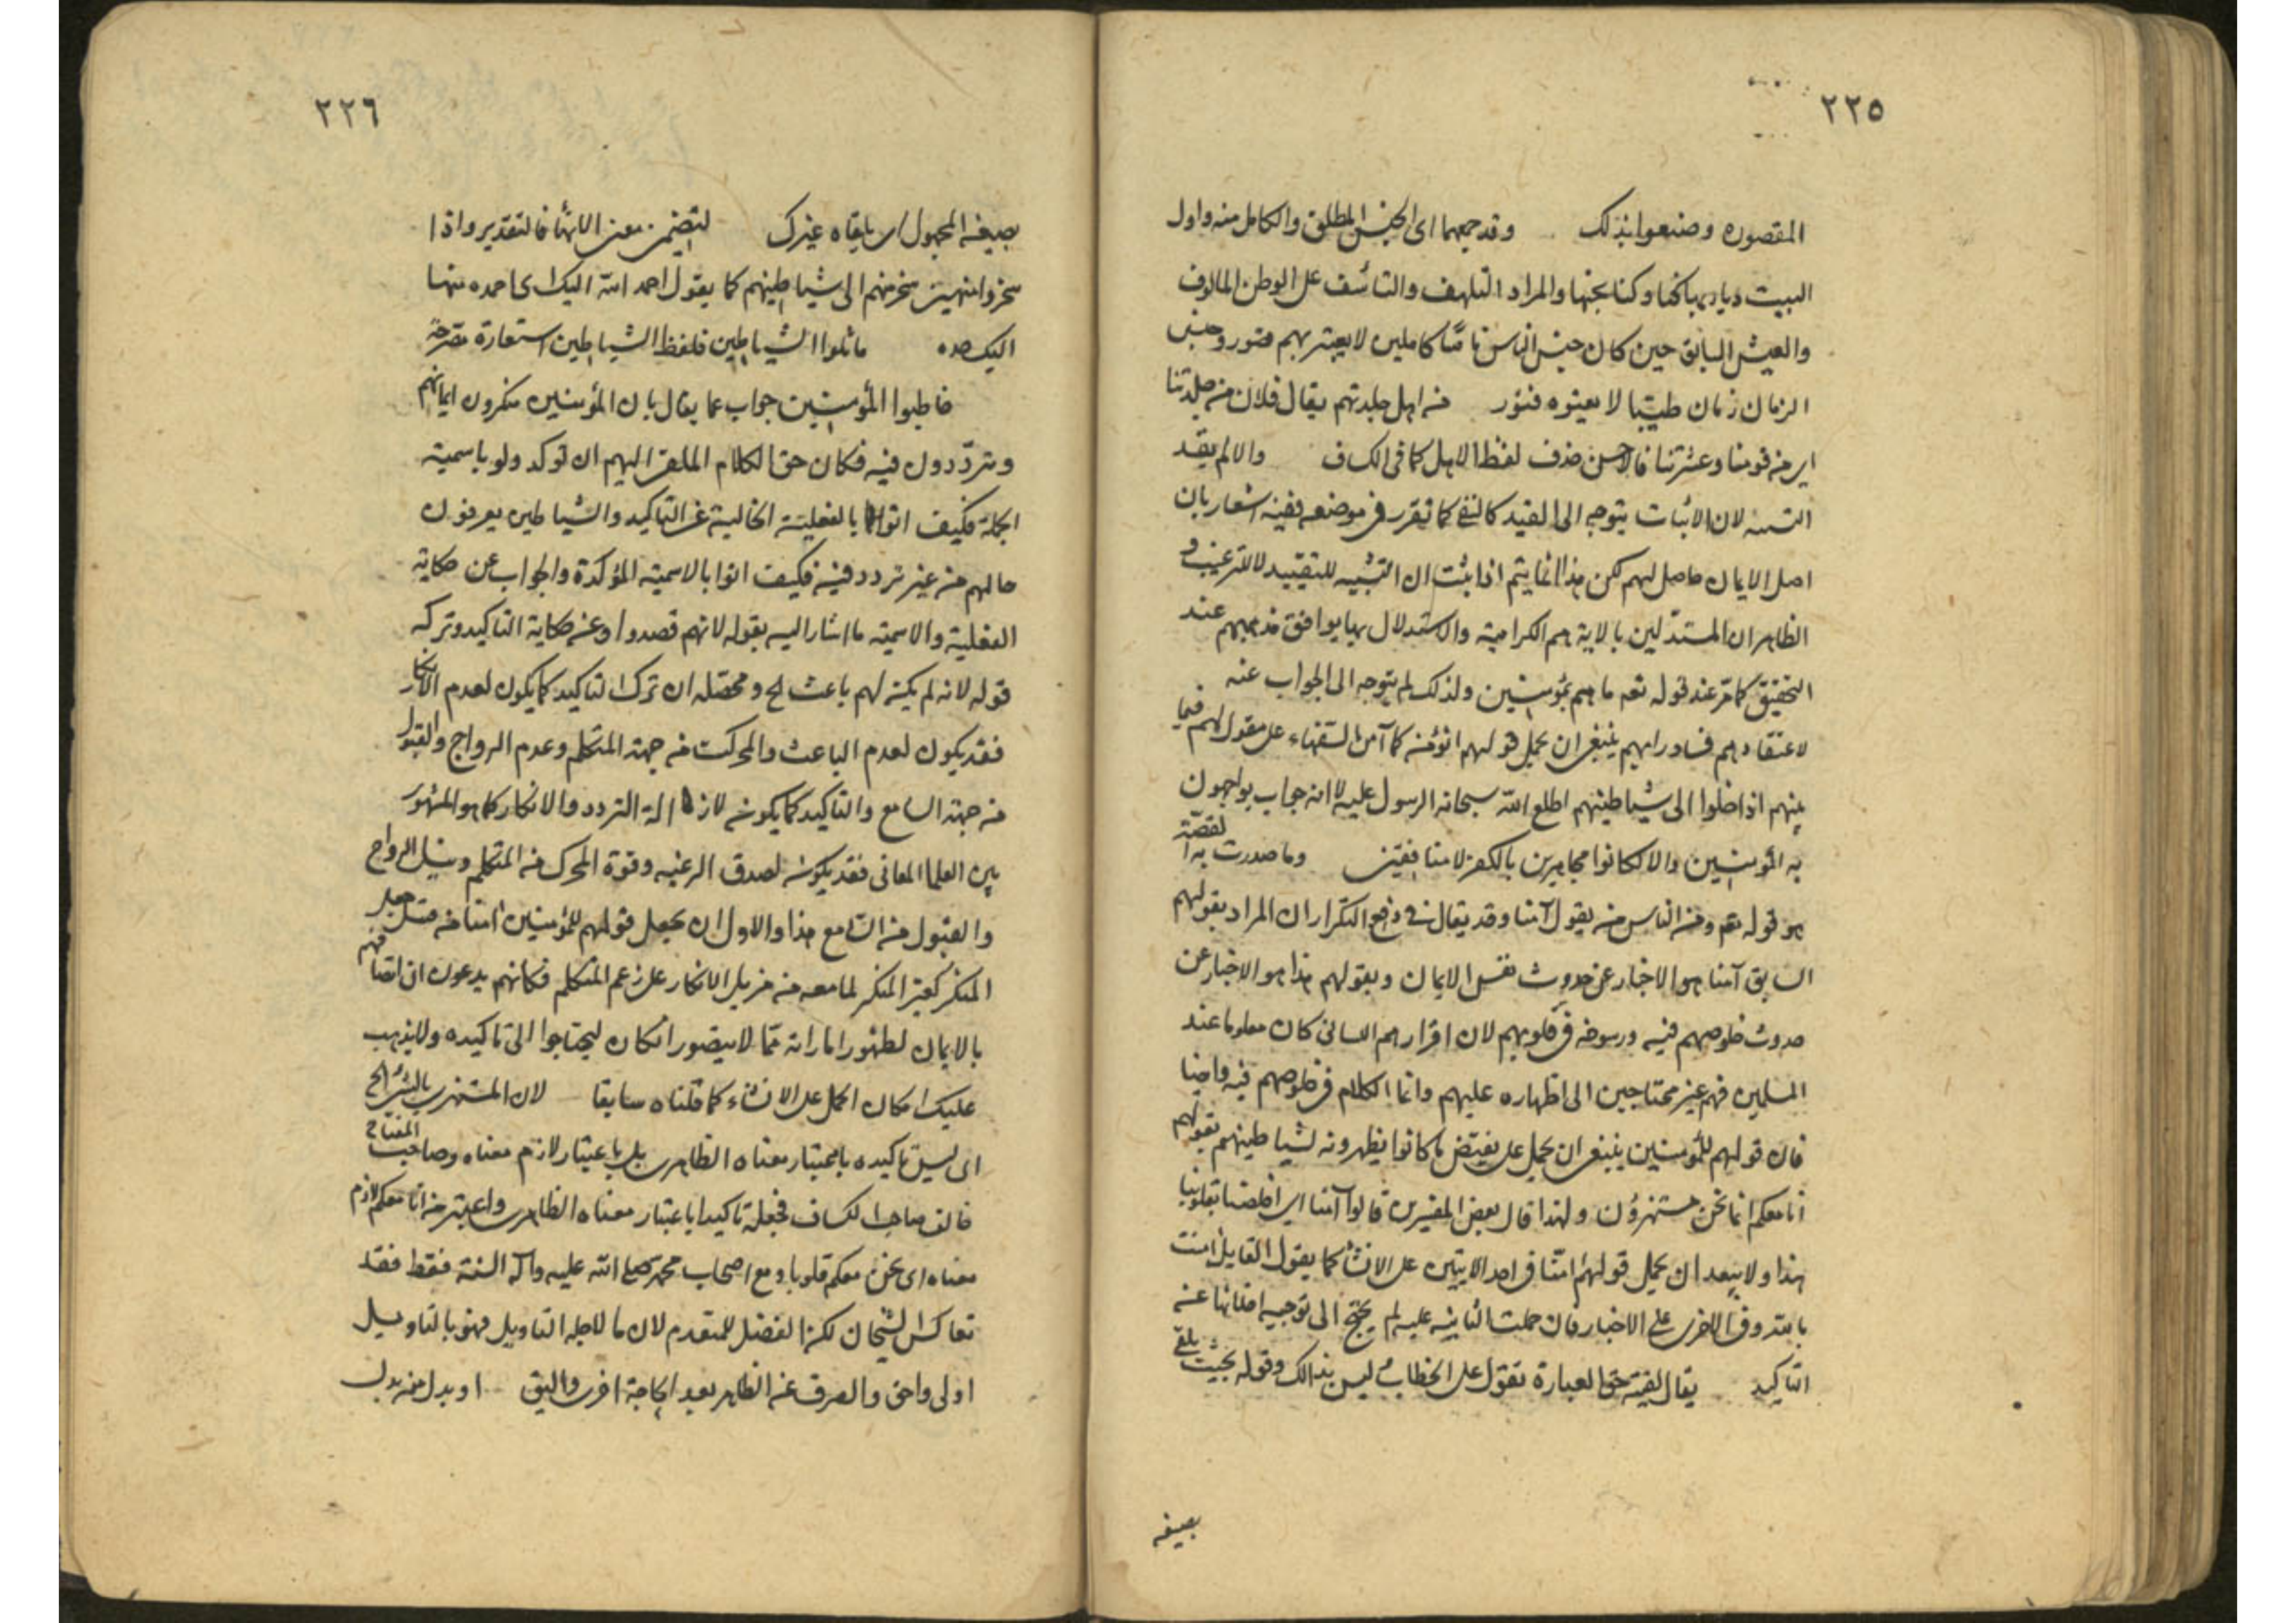 ٢٢٥
المقصوره وصنعوا بذلك وقد جمعهما اى الجنس المطلق والكامل منه واول
البيت ديار بها كنا وكنا نحبها والمراد التلهف والتأسف على الوطن المالوف
والعيش السابق حين كان جنس الناس ناسًا كاملين لا يعتريهم قصور وجنس
الزمان زمان طيبا لا يعتوه فتور من اهل جلدتهم يقال فلان من جلدتنا
اى من قومنا وعشرتنا فالاحسن حذف لفظ الاهل كما فى الكشاف والا لم يفد
لان الاثبات يتوجه الى القيد كالنفى كما تقرر فى موضعه ففيه اشعار بان
اصل الايمان حاصل لهم لكن هذا انما يتم اذا ثبت ان التشبيه للتقييد لا للترغيب و
الظاهر ان المستدلين بالاية هم الكرامية والاستدلال بها يوافق مذهبهم عند
التحقيق كما مر عند قوله تعه ما هم بمؤمنين ولذلك لم يتوجه الى الجواب عنه
لاعتقادهم فساد رايهم ينبغى ان يحمل قولهم انؤمن كما آمن السفهاء على مقول لهم فيما
بينهم اذا خلوا الى شياطينهم اطلع الله سبحانه الرسول عليه لا انه جواب يواجهون
به المؤمنين والا لكانوا مجاهرين بالكفر لا منافقين وما صدرت به القصة
هو قوله تعه ومن الناس من يقول آمنا وقد يقال فى دفع التكرار ان المراد بقولهم
السابق آمنا هو الاخبار عن حدوث نفس الايمان وبقولهم هذا هو الاخبار عن
حدوث خلوصهم فيه ورسوخه فى قلوبهم لان اقرارهم اللسانى كان معلوما عند
المسلمين فهم غير محتاجين الى اظهاره عليهم وانما الكلام فى خلوصهم فيه وايضا
فان قولهم للمؤمنين ينبغى ان يحمل على نقيض ما كانوا يظهرونه لشياطينهم بقولهم
انا معكم انما نحن مستهزؤن ولهذا قال بعض المفسرين قالوا آمنا اى اخلصنا بقلوبنا
هذا ولا يبعد ان يحمل قولهم امنا فى احد الايتين على الانشاء كما يقول القايل امنت
بالله وفى الاخرى على الاخبار فان حملت الثانيه عليه لم يحتج الى توجيه اخلائها عن
التاكيد يقال لقيته حق العبارة تقول على الخطاب ليس بذالك وقوله بحيث يلقى
بصيغه
٢٢٦
بصيغه المجهول اى يلقاه غيرك لتضمن معنى الانهاء فالتقدير واذا
سخروا منهين سخرتهم الى شياطينهم كما يقول احمد الله اليك اى احمده منها
اليك حمده ماثلوا الشياطين فلفظ الشياطين استعارة مصرحة
خاطبوا المؤمنين جواب عما يقال بان المؤمنين منكرون ايمانهم
ومترددون فيه فكان حق الكلام الملقى اليهم ان توكد ولو باسمية
الجملة فكيف اتوا بالفعلية الخالية عن التاكيد والشياطين يعرفون
حالهم من غير تردد فيه فكيف اتوا بالاسمية المؤكدة والجواب عن حكاية
الفعلية والاسمية ما اشار اليه بقوله لانهم قصدوا وعن حكاية التاكيد وتركه
قوله لانه لم يكن لهم باعث الخ ومحصله ان ترك التاكيد كما يكون لعدم الانكار
فقد يكون لعدم الباعث والمحرك من جهة المتكلم وعدم الرواج والقبول
من جهة السامع والتاكيد كما يكون لازالة التردد والانكار كما هو المشهور
بين العلما المعانى فقد يكون لصدق الرغبه وقوة المحرك من المتكلم ونيل الرواج
والقبول من السامع هذا والاول ان يجعل قولهم للمؤمنين امنا من قبيل جعل
المنكر كغير المنكر لما معه من مزيل الانكار على زعم المتكلم فكانهم يدعون ان اتصافهم
بالايمان لظهور اماراته مما لا يتصور انكان ليحتاجوا الى تاكيده ولا يذهب
عليك امكان الحمل على الانشاء كما قلناه سابقا لان المستهزئ بالشئ الخ
اى ليس تاكيده باعتبار معناه الظاهرى بل باعتبار لازم معناه وصاحب المفتاح
خالف صاحب الكشاف فجعله تاكيدا باعتبار معناه الظاهرى واعتبر من انا معكم لازم
معناه اى نحن معكم قلوبا ومع اصحاب محمد صلى الله عليه وآله السنة فقط فقد
تعاكس الشيخان لكن الفضل للمتقدم لان ما لاجله التاويل فهو بالتاويل
اولى واحق والصرف عن الظاهر بعد الحاجة اخرى واليق او بدل منه بدل